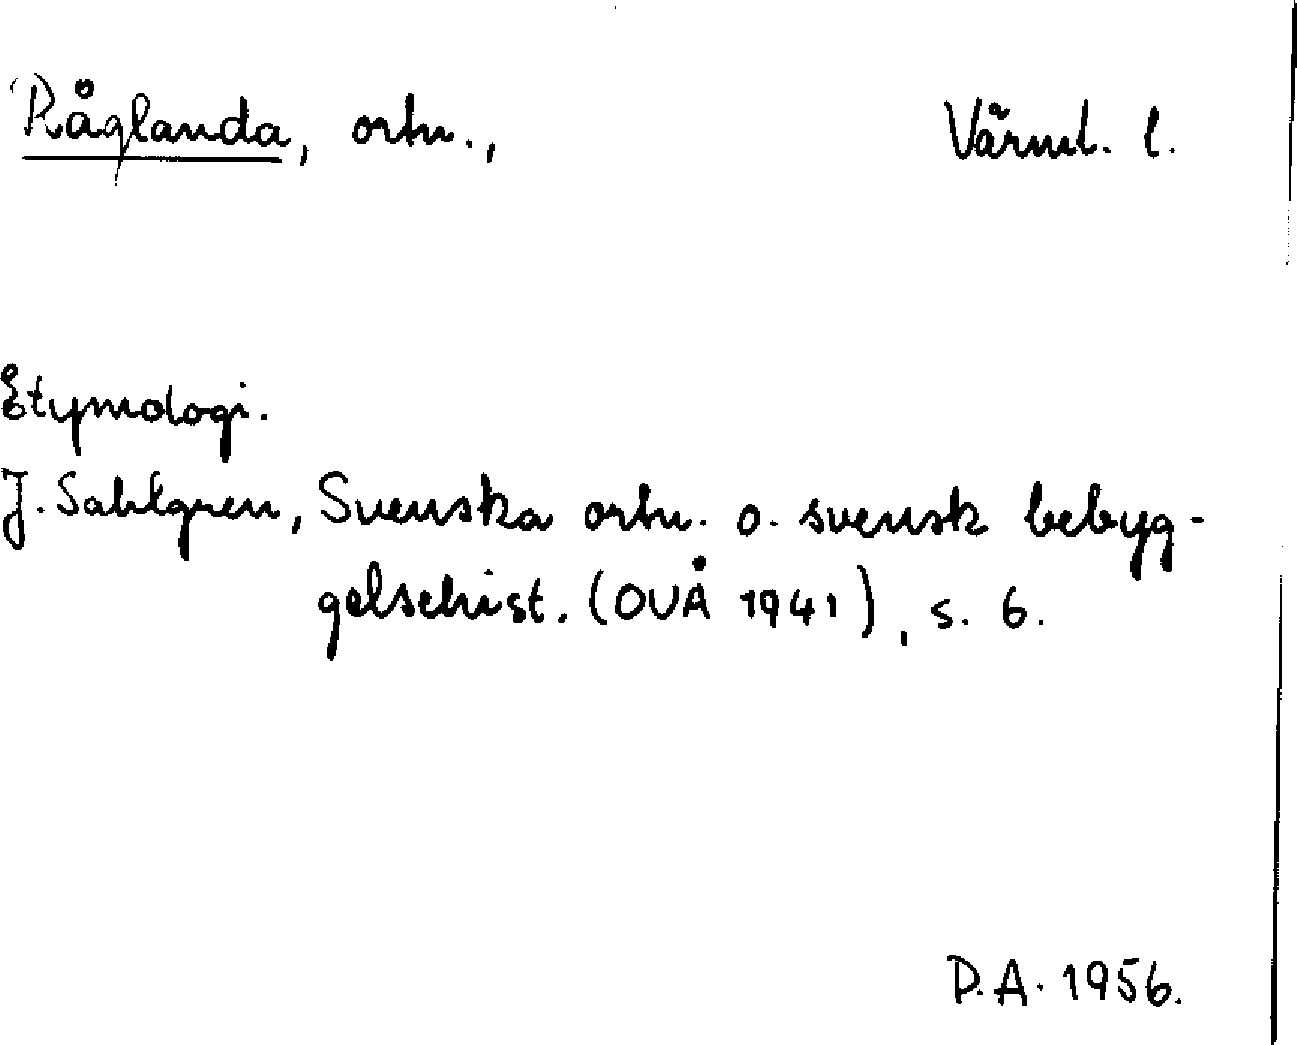 Råglanda, ortn., Värml. l.
Etymologi.
J. Sahlgren, Svenska ortn. o. svensk bebyg-
gelsehist. (OUÅ 1941), s. 6.
D.A. 1956.